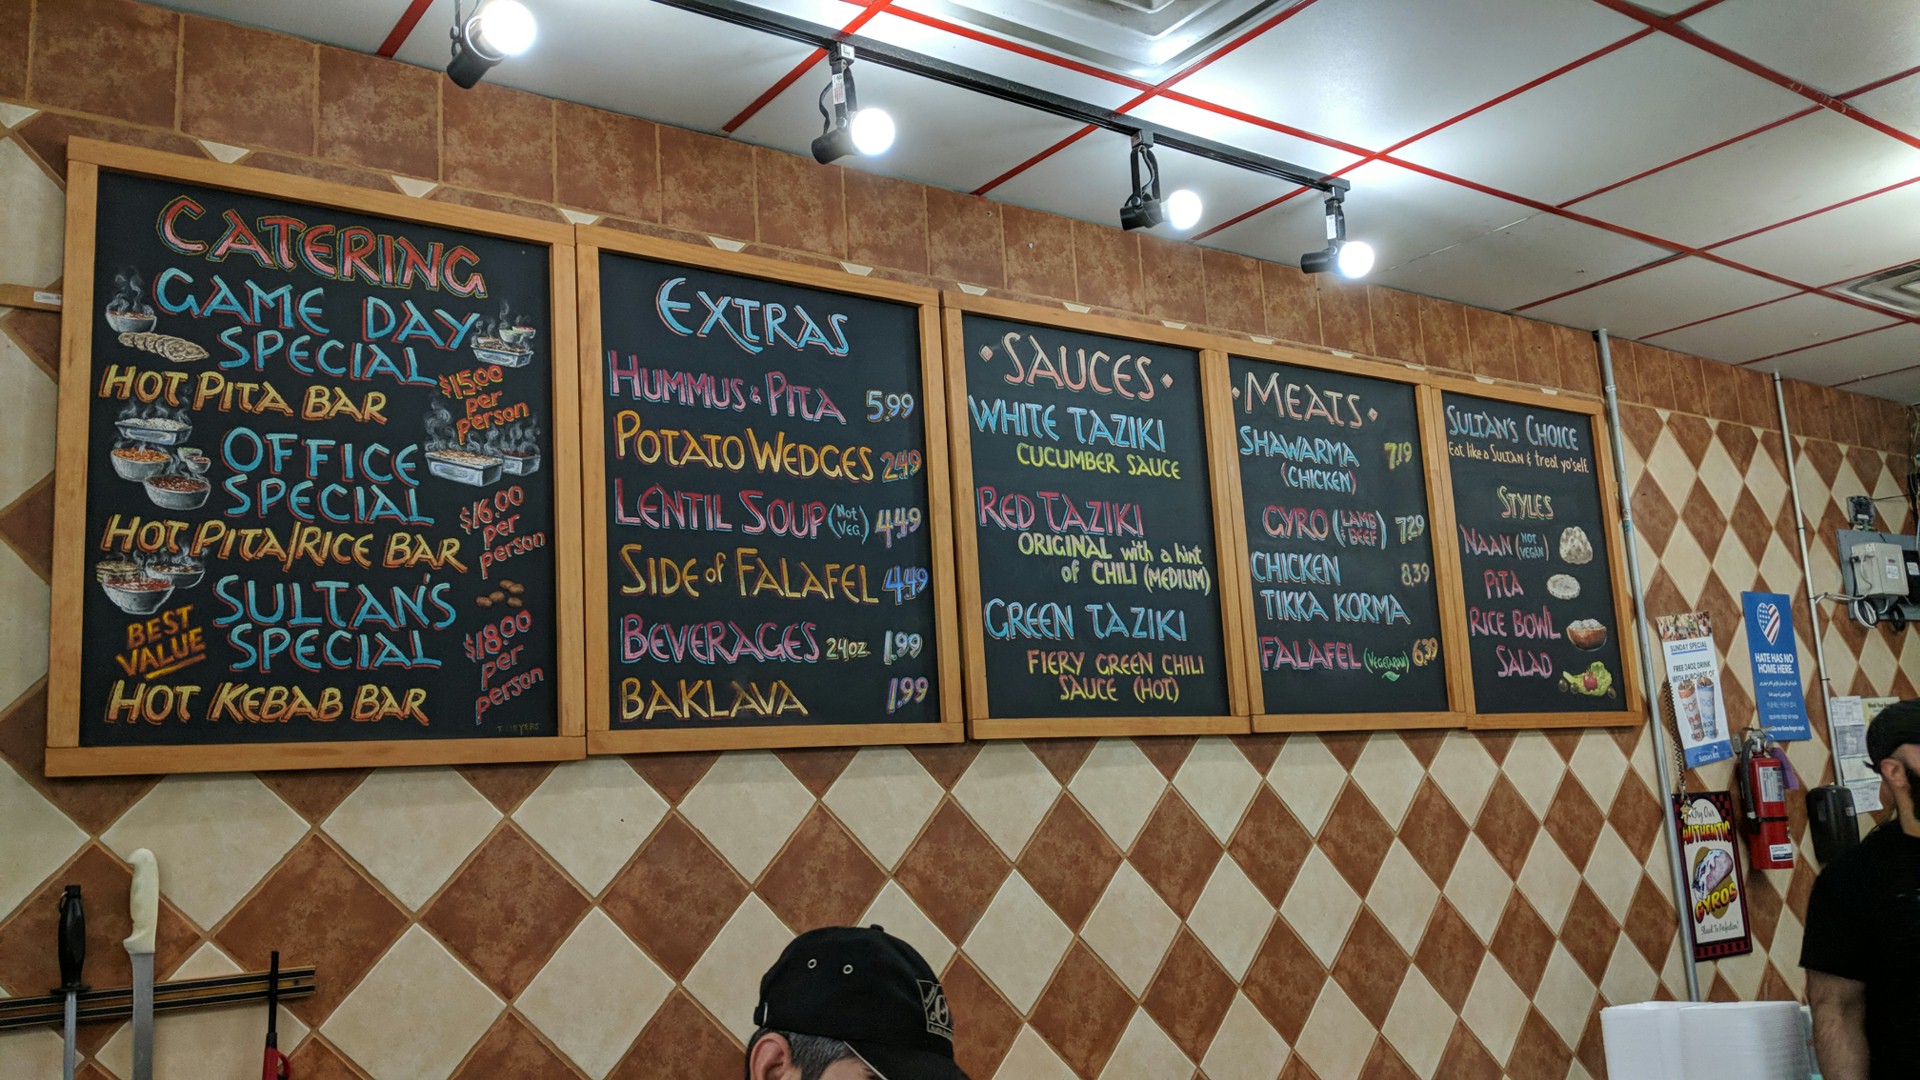 CATERING
GAME DAY
SPECIAL
HOT PITA BAR
$15.00
per
person
OFFICE
SPECIAL
HOT PITA/RICE BAR
$16.00
per
person
BEST
VALUE
SULTAN'S
SPECIAL
HOT KEBAB BAR
$18.00
per
person
T. MEYERS
EXTRAS
HUMMUS & PITA 5.99
POTATO WEDGES 2.49
LENTIL SOUP (Not VEG.) 4.49
SIDE of FALAFEL 4.49
BEVERAGES 24oz 1.99
BAKLAVA 1.99
• SAUCES •
WHITE TAZIKI
CUCUMBER SAUCE
RED TAZIKI
ORIGINAL with a hint
of CHILI (MEDIUM)
GREEN TAZIKI
FIERY GREEN CHILI
SAUCE (HOT)
• MEATS •
SHAWARMA 7.19
(CHICKEN)
GYRO (LAMB & BEEF) 7.29
CHICKEN 8.39
TIKKA KORMA
FALAFEL (VEGETARIAN) 6.39
SULTAN'S CHOICE
Eat like a SULTAN & treat yo'self.
STYLES
NAAN (NOT VEGAN)
PITA
RICE BOWL
SALAD
SUNDAY SPECIAL
FREE 24OZ DRINK
WITH PURCHASE OF
HATE HAS NO
HOME HERE.
Try Our
AUTHENTIC
GYROS